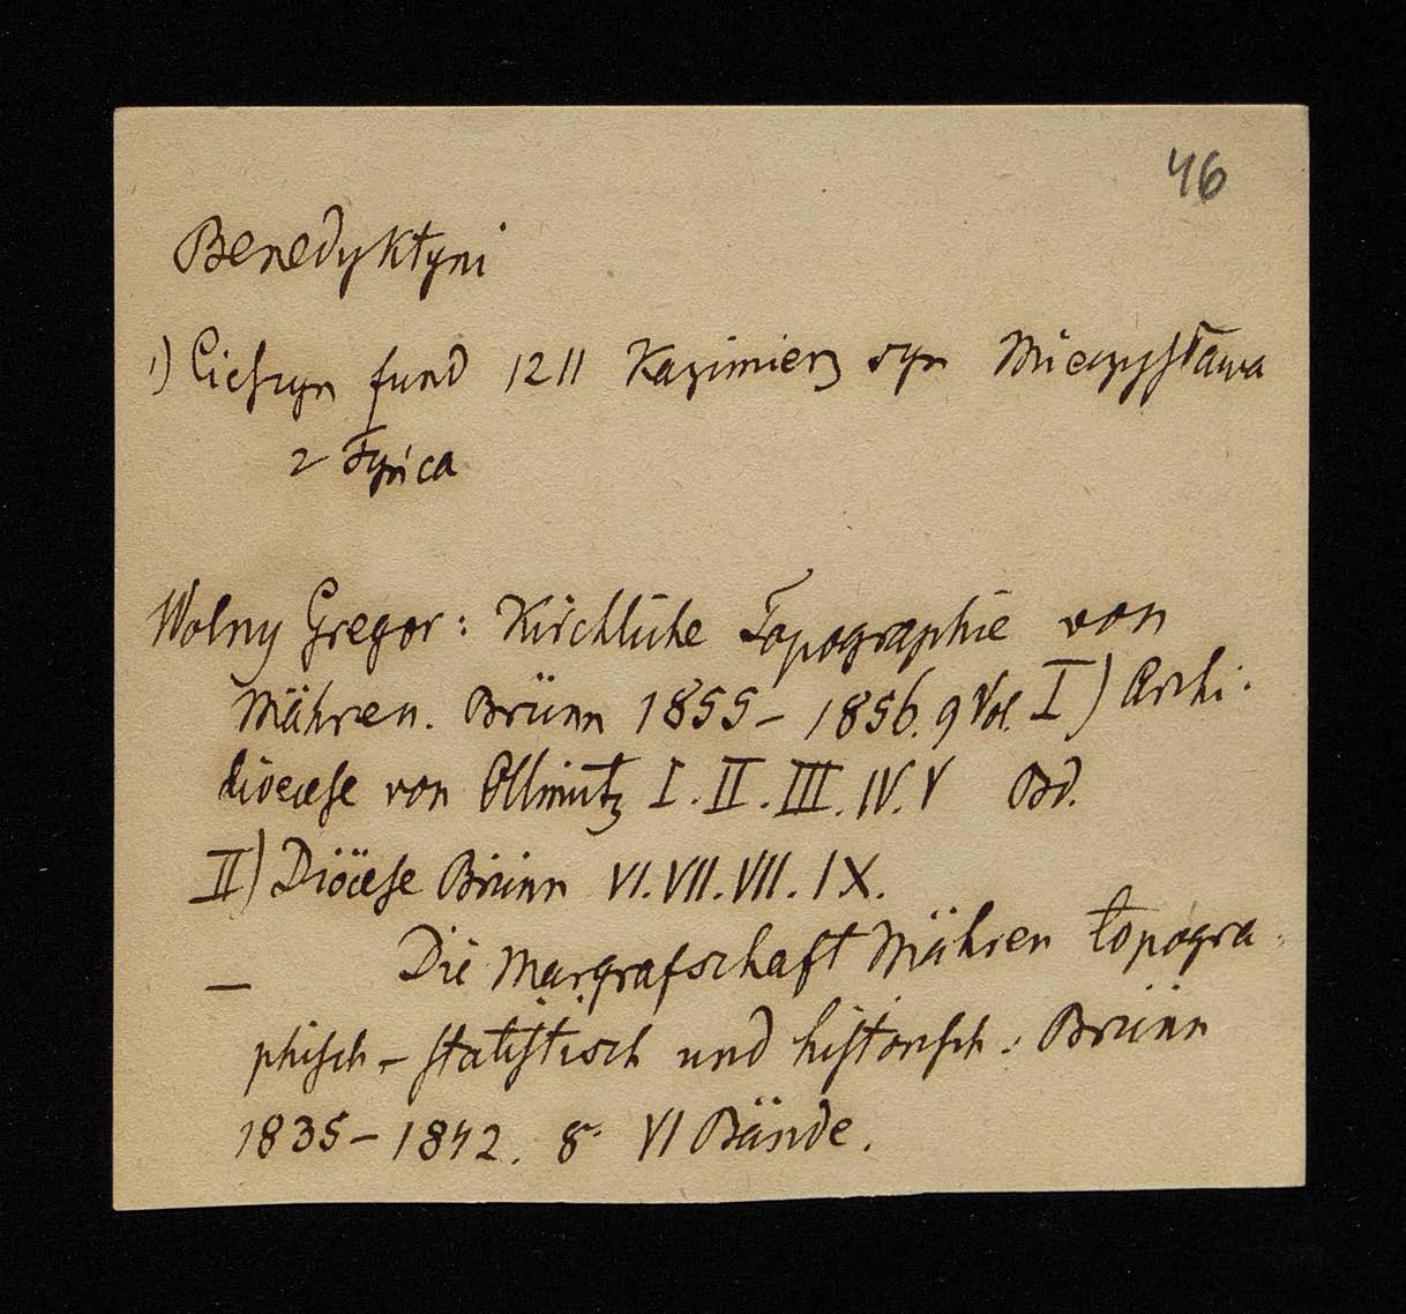 46
Benedyktyni
1) Cieszyn fund 1211 Kazimierz syn Mieczysława
z Tyńca
Wolny Gregor: Kirchliche Topographie von
Mähren. Brünn 1855-1856. 9 Vol. I) Archi-
diöcese von Ollmütz I. II. III. IV. V Bd.
II) Diöcese Brünn VI. VII. VII. IX.
— Die Margrafschaft Mähren topogra-
phisch-statistisch und historisch: Brünn
1835-1842. 8° VI Bände.